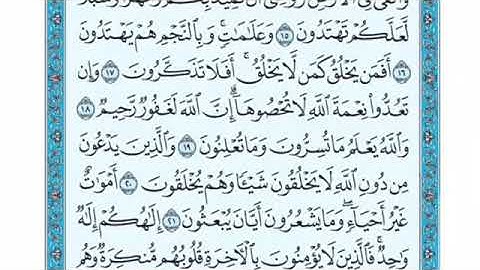 وَأَلْقَىٰ فِي ٱلْأَرْضِ رَوَٰسِيَ أَن تَمِيدَ بِكُمْ وَأَنْهَٰرًا وَسُبُلًا
لَّعَلَّكُمْ تَهْتَدُونَ ١٥ وَعَلَٰمَٰتٍ ۚ وَبِٱلنَّجْمِ هُمْ يَهْتَدُونَ
١٦ أَفَمَن يَخْلُقُ كَمَن لَّا يَخْلُقُ ۗ أَفَلَا تَذَكَّرُونَ ١٧ وَإِن
تَعُدُّوا۟ نِعْمَةَ ٱللَّهِ لَا تُحْصُوهَآ ۗ إِنَّ ٱللَّهَ لَغَفُورٌ رَّحِيمٌ ١٨
وَٱللَّهُ يَعْلَمُ مَا تُسِرُّونَ وَمَا تُعْلِنُونَ ١٩ وَٱلَّذِينَ يَدْعُونَ
مِن دُونِ ٱللَّهِ لَا يَخْلُقُونَ شَيْـًٔا وَهُمْ يُخْلَقُونَ ٢٠ أَمْوَٰتٌ
غَيْرُ أَحْيَآءٍ ۖ وَمَا يَشْعُرُونَ أَيَّانَ يُبْعَثُونَ ٢١ إِلَٰهُكُمْ إِلَٰهٌ
وَٰحِدٌ ۚ فَٱلَّذِينَ لَا يُؤْمِنُونَ بِٱلْأَخِرَةِ قُلُوبُهُم مُّنكِرَةٌ وَهُم